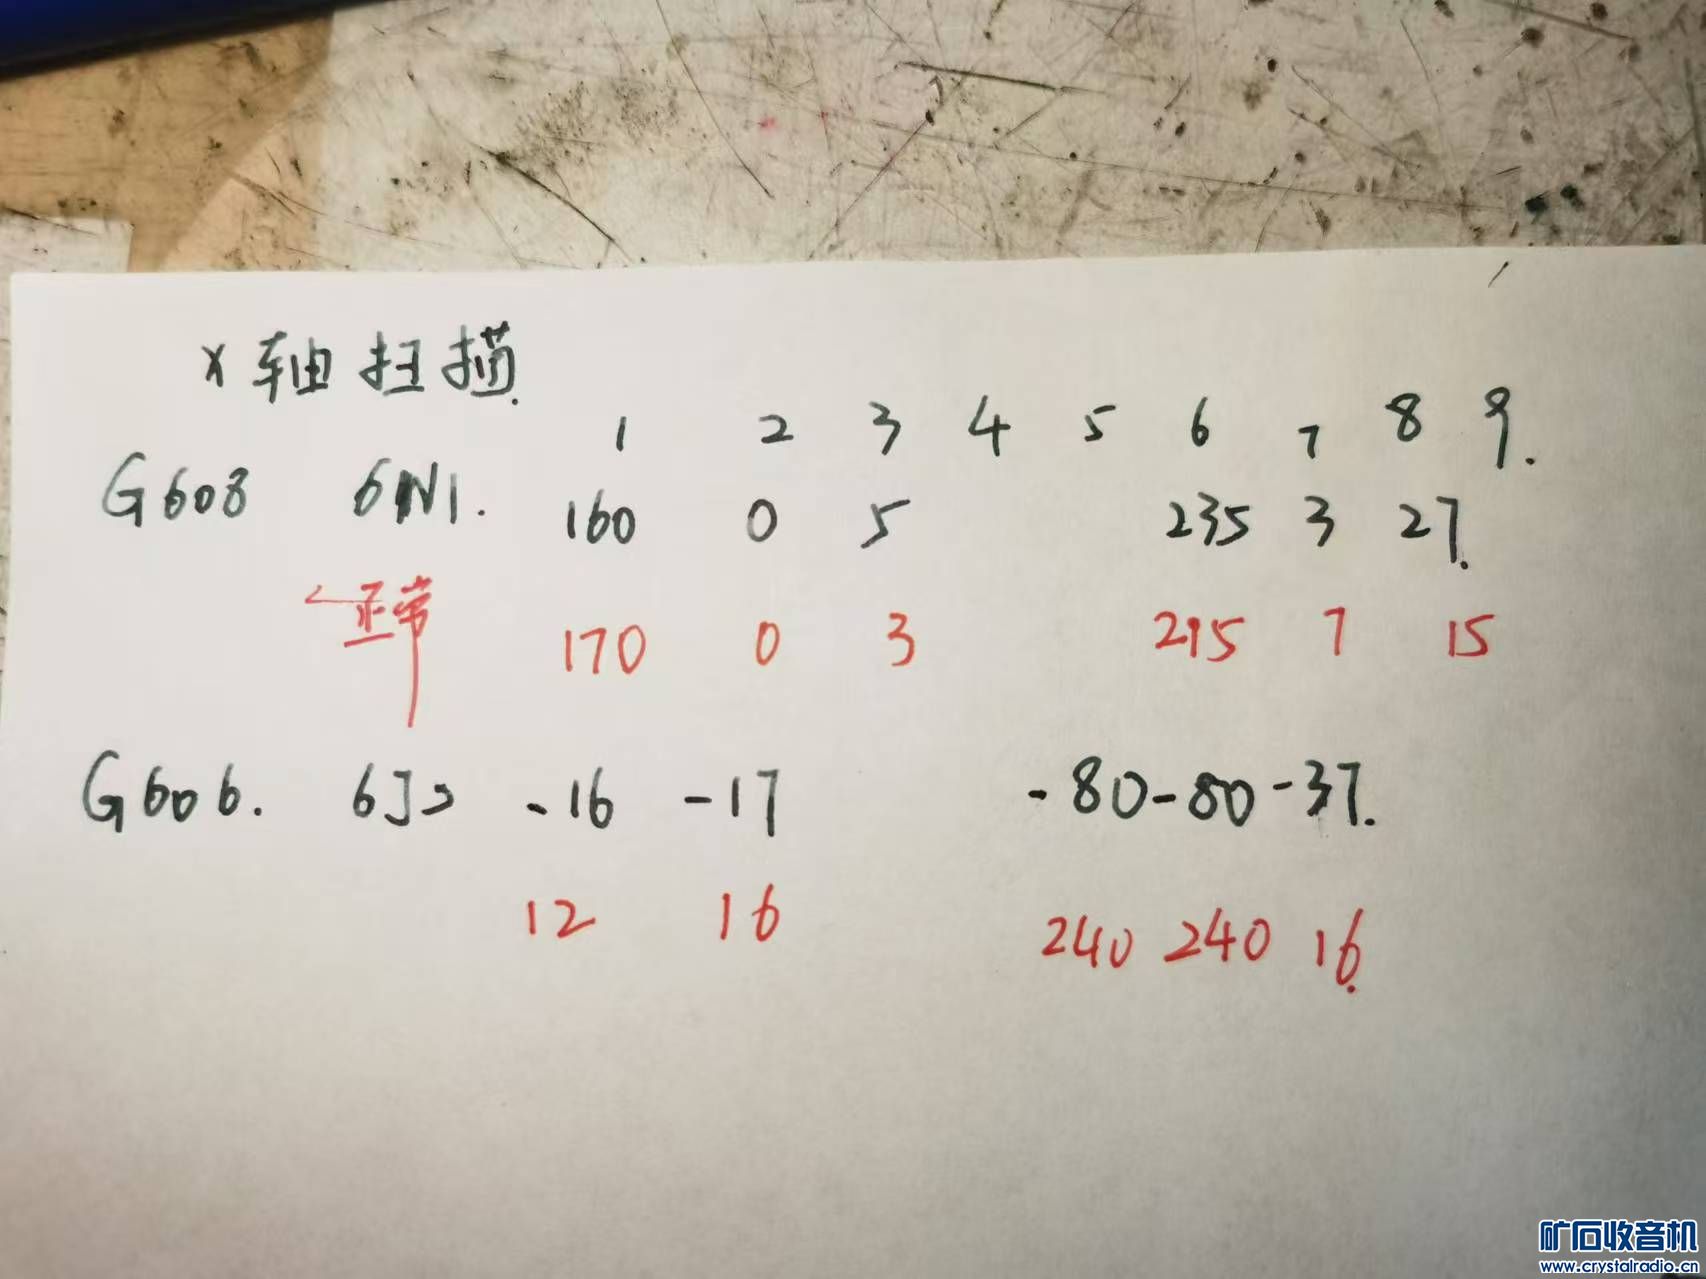 x轴扫描
1 2 3 4 5 6 7 8 9.
G608 6N1. 160 0 5 235 3 27.
正常 170 0 3 215 7 15
G606. 6J2 -16 -17 -80 -80 -37.
12 16 240 240 16.
矿石收音机
www.crystalradio.cn